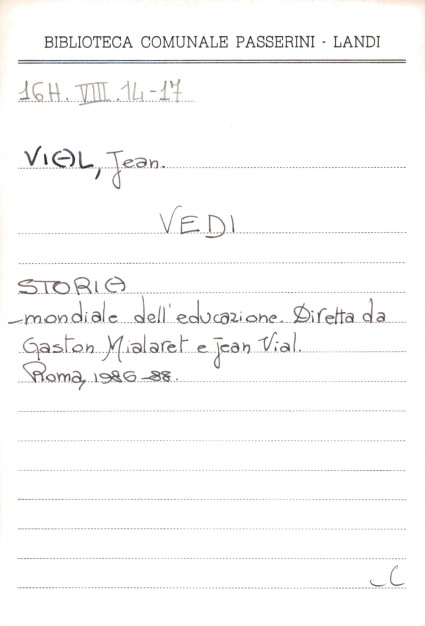 BIBLIOTECA COMUNALE PASSERINI - LANDI
16H. VIII. 14-17
VIAL, Jean.
VEDI
STORIA
mondiale dell'educazione. Diretta da
Gaston Mialaret e Jean Vial.
Roma, 1986-88.